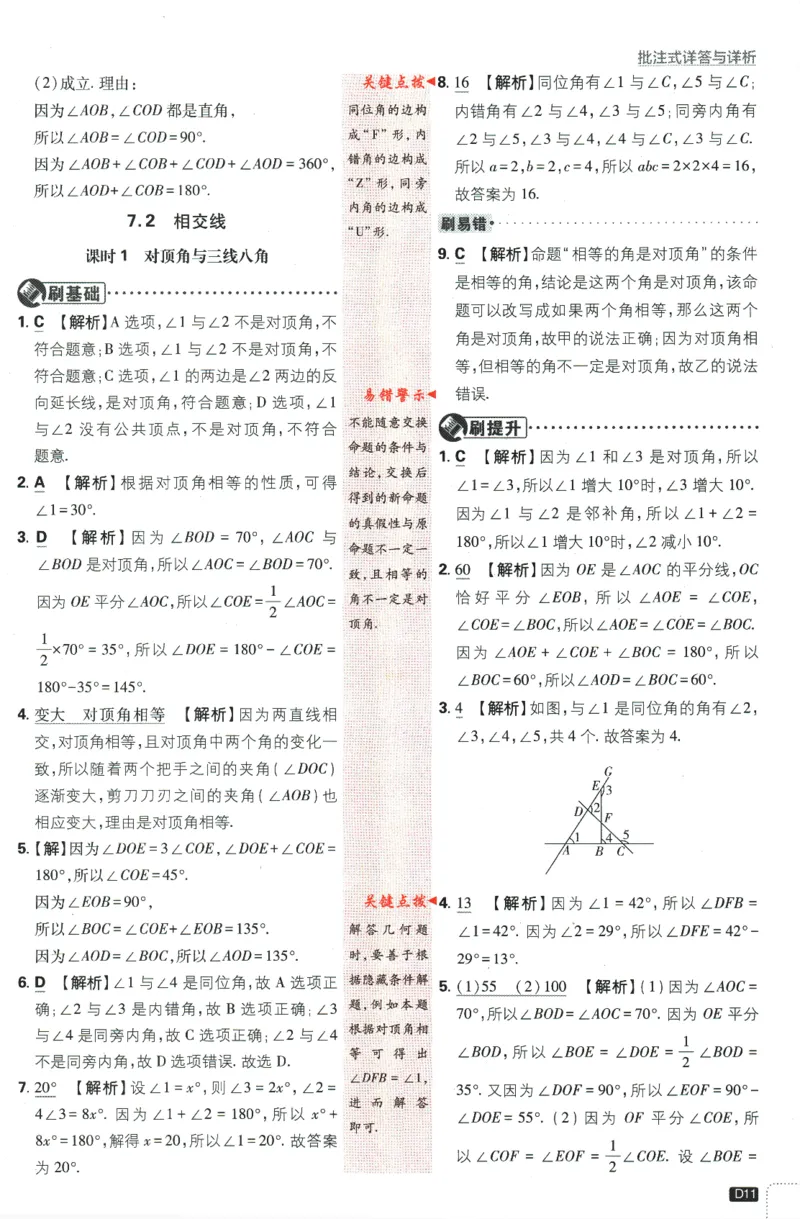 批注式详答与详析
(2)成立. 理由:
因为∠AOB,∠COD 都是直角,
所以∠AOB=∠COD=90°.
因为∠AOB+∠COB+∠COD+∠AOD=360°,
所以∠AOD+∠COB=180°.
7.2 相交线
课时1 对顶角与三线八角
刷基础
1. C 【解析】A 选项,∠1 与∠2 不是对顶角,不
符合题意;B 选项,∠1 与∠2 不是对顶角,不
符合题意;C 选项,∠1 的两边是∠2 两边的反
向延长线,是对顶角,符合题意;D 选项,∠1
与∠2 没有公共顶点,不是对顶角,不符合
题意.
2. A 【解析】根据对顶角相等的性质,可得
∠1=30°.
3. D 【解析】因为 ∠BOD = 70°, ∠AOC 与
∠BOD 是对顶角,所以∠AOC=∠BOD=70°.
因为 OE 平分∠AOC,所以∠COE=1/2∠AOC=
1/2×70°=35°,所以∠DOE=180°-∠COE=
180°-35°=145°.
4. 变大 对顶角相等 【解析】因为两直线相
交,对顶角相等,且对顶角中两个角的变化一
致,所以随着两个把手之间的夹角(∠DOC)
逐渐变大,剪刀刀刃之间的夹角(∠AOB)也
相应变大,理由是对顶角相等.
5.【解】因为∠DOE=3∠COE,∠DOE+∠COE=
180°,所以∠COE=45°.
因为∠EOB=90°,
所以∠BOC=∠COE+∠EOB=135°.
因为∠AOD=∠BOC,所以∠AOD=135°.
6. D 【解析】∠1 与∠4 是同位角,故 A 选项正
确;∠2 与∠3 是内错角,故 B 选项正确;∠3
与∠4 是同旁内角,故 C 选项正确;∠2 与∠4
不是同旁内角,故 D 选项错误. 故选 D.
7. 20° 【解析】设∠1=x°,则∠3=2x°,∠2=
4∠3=8x°. 因为∠1+∠2=180°,所以 x°+
8x°=180°,解得 x=20,所以∠1=20°. 故答案
为 20°.
关键点拨
同位角的边构
成“F”形,内
错角的边构成
“Z”形,同旁
内角的边构成
“U”形.
易错警示
不能随意交换
命题的条件与
结论,交换后
得到的新命题
的真假性与原
命题不一定一
致,且相等的
角不一定是对
顶角.
关键点拨
解答几何题
时,要善于根
据隐藏条件解
题,例如本题
根据对顶角相
等可得出
∠DFB=∠1,
进而解答
即可.
8. 16 【解析】同位角有∠1 与∠C,∠5 与∠C;
内错角有∠2 与∠4,∠3 与∠5;同旁内角有
∠2 与∠5,∠3 与∠4,∠4 与∠C,∠3 与∠C.
所以 a=2,b=2,c=4,所以 abc=2×2×4=16,
故答案为 16.
刷易错
9. C 【解析】命题“相等的角是对顶角”的条件
是相等的角,结论是这两个角是对顶角,该命
题可以改写成如果两个角相等,那么这两个
角是对顶角,故甲的说法正确;因为对顶角相
等,但相等的角不一定是对顶角,故乙的说法
错误.
刷提升
1. C 【解析】因为∠1 和∠3 是对顶角,所以
∠1=∠3,所以∠1 增大 10°时,∠3 增大 10°.
因为∠1 与∠2 是邻补角,所以∠1+∠2=
180°,所以∠1 增大 10°时,∠2 减小 10°.
2. 60 【解析】因为 OE 是∠AOC 的平分线,OC
恰好平分 ∠EOB, 所以 ∠AOE = ∠COE,
∠COE=∠BOC,所以∠AOE=∠COE=∠BOC.
因为 ∠AOE + ∠COE + ∠BOC = 180°, 所以
∠BOC=60°,所以∠AOD=∠BOC=60°.
3. 4 【解析】如图,与∠1 是同位角的角有∠2,
∠3,∠4,∠5,共 4 个. 故答案为 4.
G
E 3
D 2
F
1 4 5
A B C
4. 13 【解析】因为∠1=42°,所以∠DFB=
∠1=42°. 因为∠2=29°,所以∠DFE=42°-
29°=13°.
5. (1)55 (2)100 【解析】(1)因为∠AOC=
70°,所以∠BOD=∠AOC=70°. 因为 OE 平分
∠BOD,所以∠BOE=∠DOE=1/2∠BOD=
35°. 又因为∠DOF=90°,所以∠EOF=90°-
∠DOE=55°. (2)因为 OF 平分∠COE,所
以∠COF=∠EOF=1/2∠COE. 设∠BOE=
D11